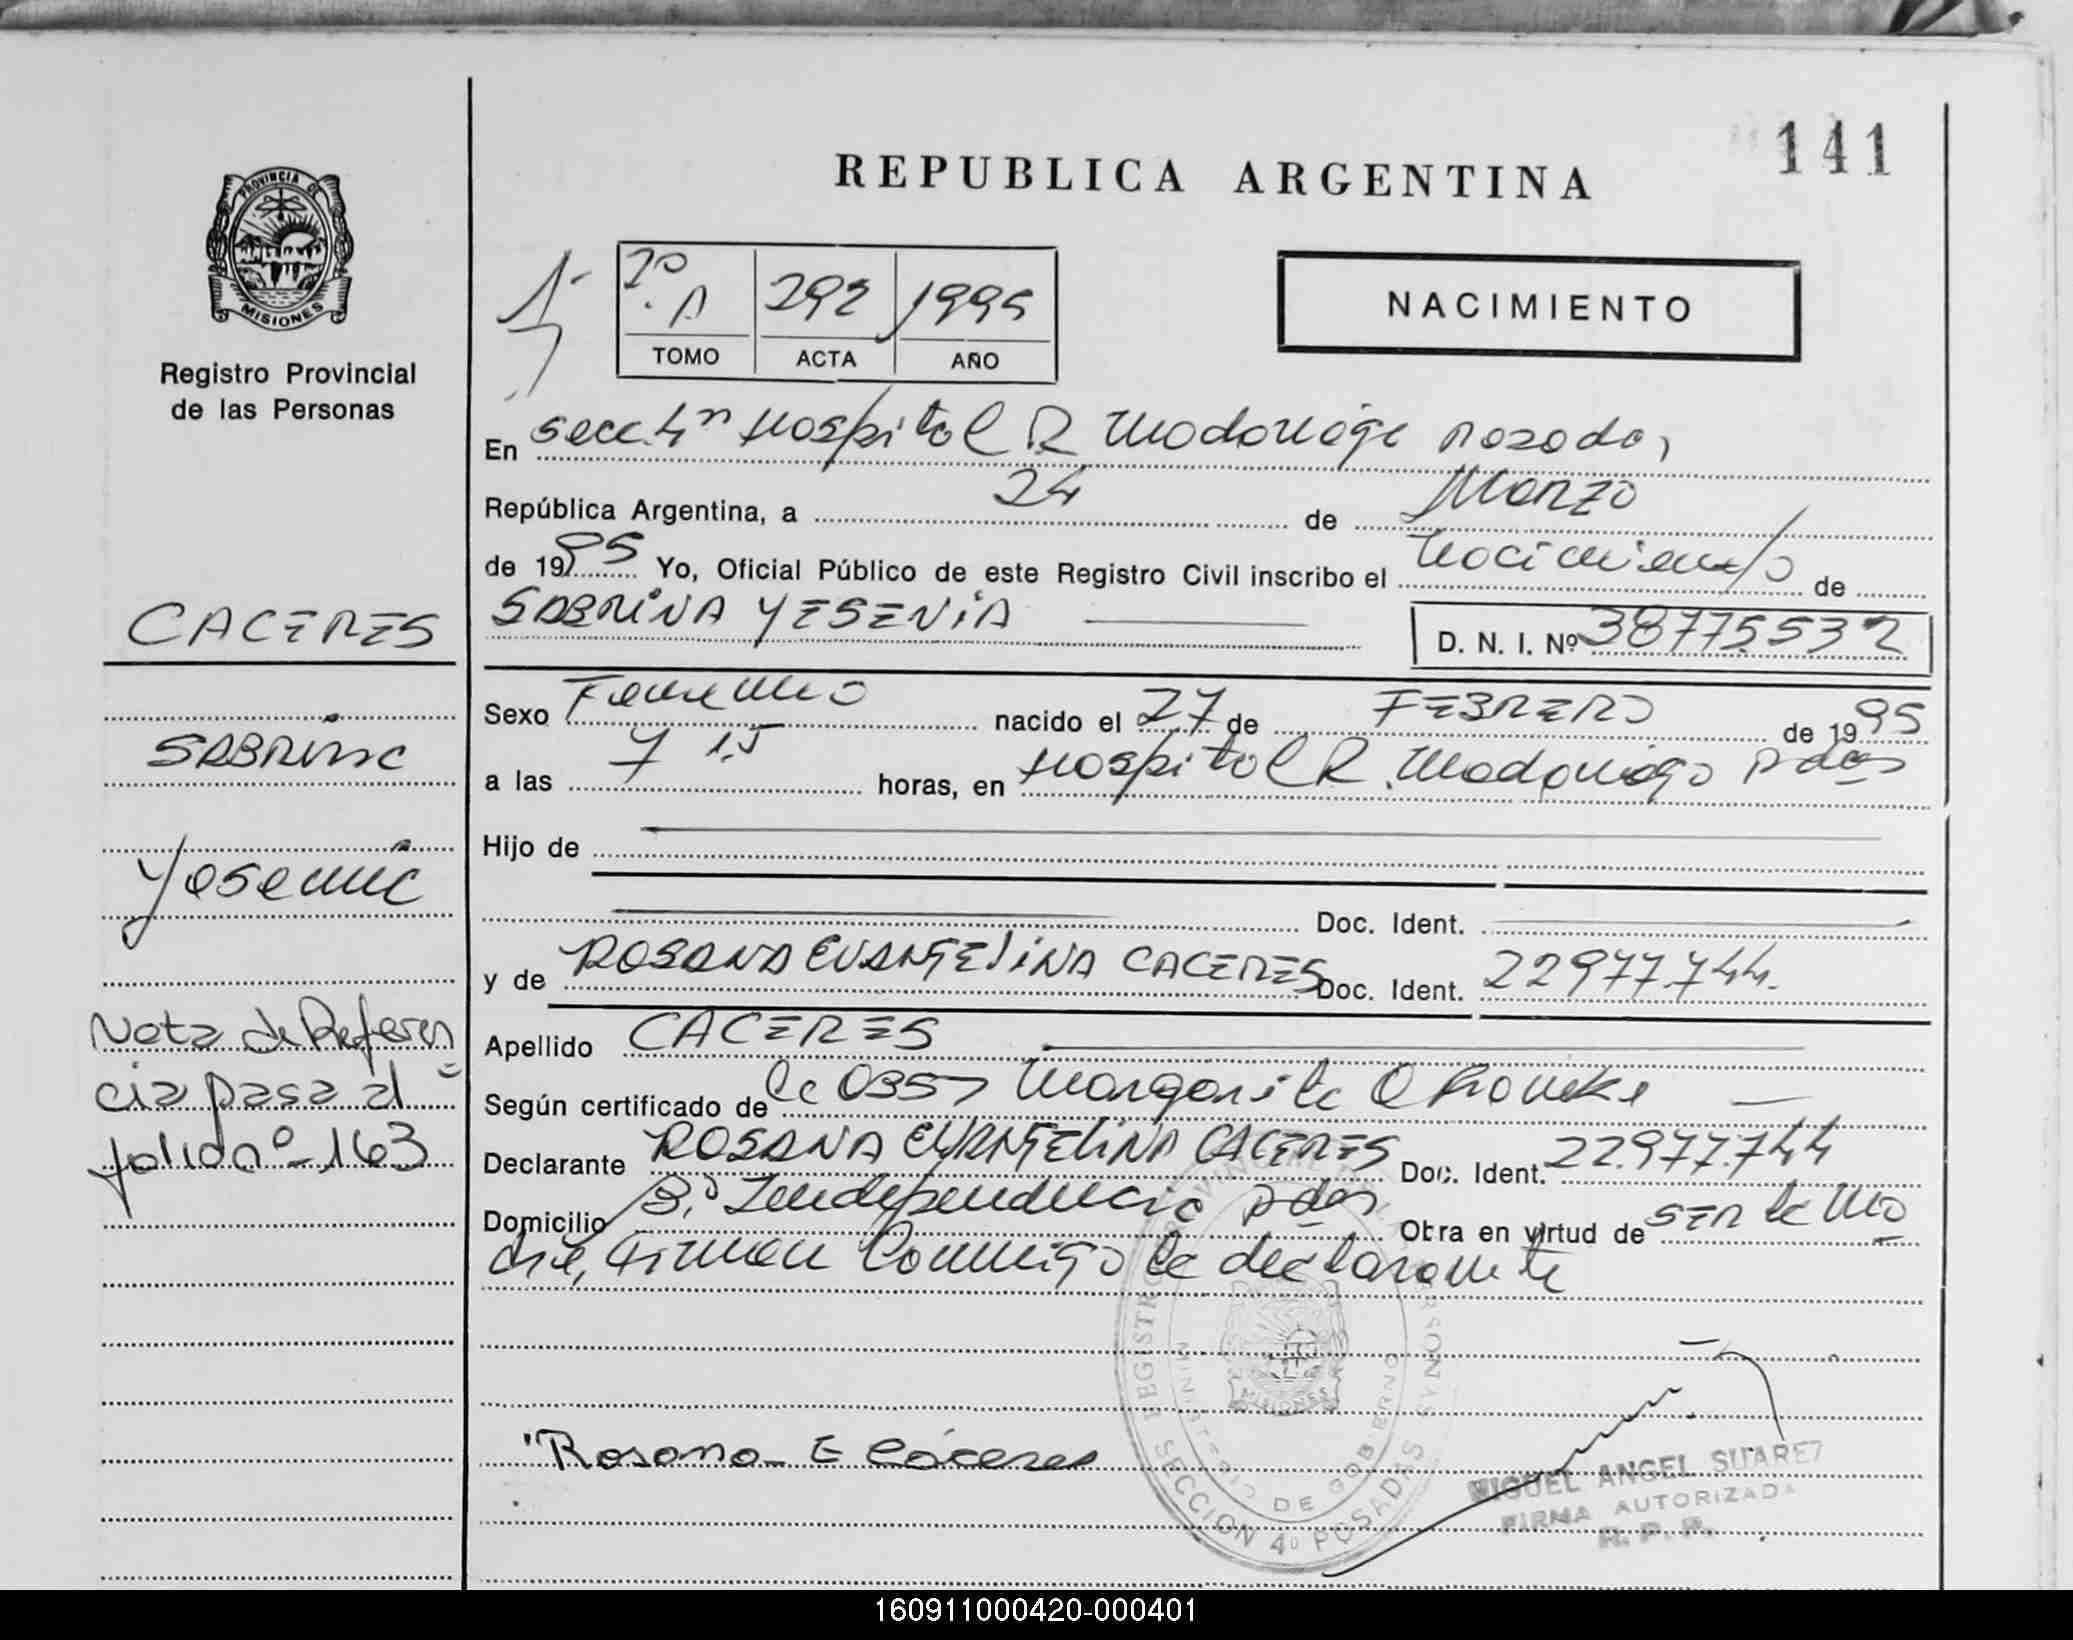 141
REPUBLICA ARGENTINA
PROVINCIA DE
MISIONES
Registro Provincial
de las Personas
2º A 292 1995
TOMO ACTA AÑO
NACIMIENTO
En secc. 4ª Hospital R Madariaga Posadas
República Argentina, a 24 de Marzo
de 1995 Yo, Oficial Público de este Registro Civil inscribo el nacimiento de
SABRINA YESENIA D. N. I. Nº 38775.532
CACERES
Sabrina
Yesenia
Nota de Referen
cia pasa al
folio nº 163
Sexo Femenino nacido el 27 de FEBRERO de 1995
a las 7 15 horas, en Hospital R. Madariaga Pdas
Hijo de
Doc. Ident.
y de ROSANA EVANGELINA CACERES Doc. Ident. 22977.744.
Apellido CACERES
Según certificado de Lc 0357 Margarita
Declarante ROSANA EVANGELINA CACERES Doc. Ident. 22.977.744
Domicilio Bº Independencia Pdas Obra en virtud de ser la ma
dre, Firman Conmigo la declarante
Rosana E Cáceres
REGISTRO PROVINCIAL DE LAS PERSONAS
MINISTERIO DE GOBIERNO
MISIONES
SECCION 4º POSADAS
MIGUEL ANGEL SUAREZ
FIRMA AUTORIZADA
R. P. P.
160911000420-000401